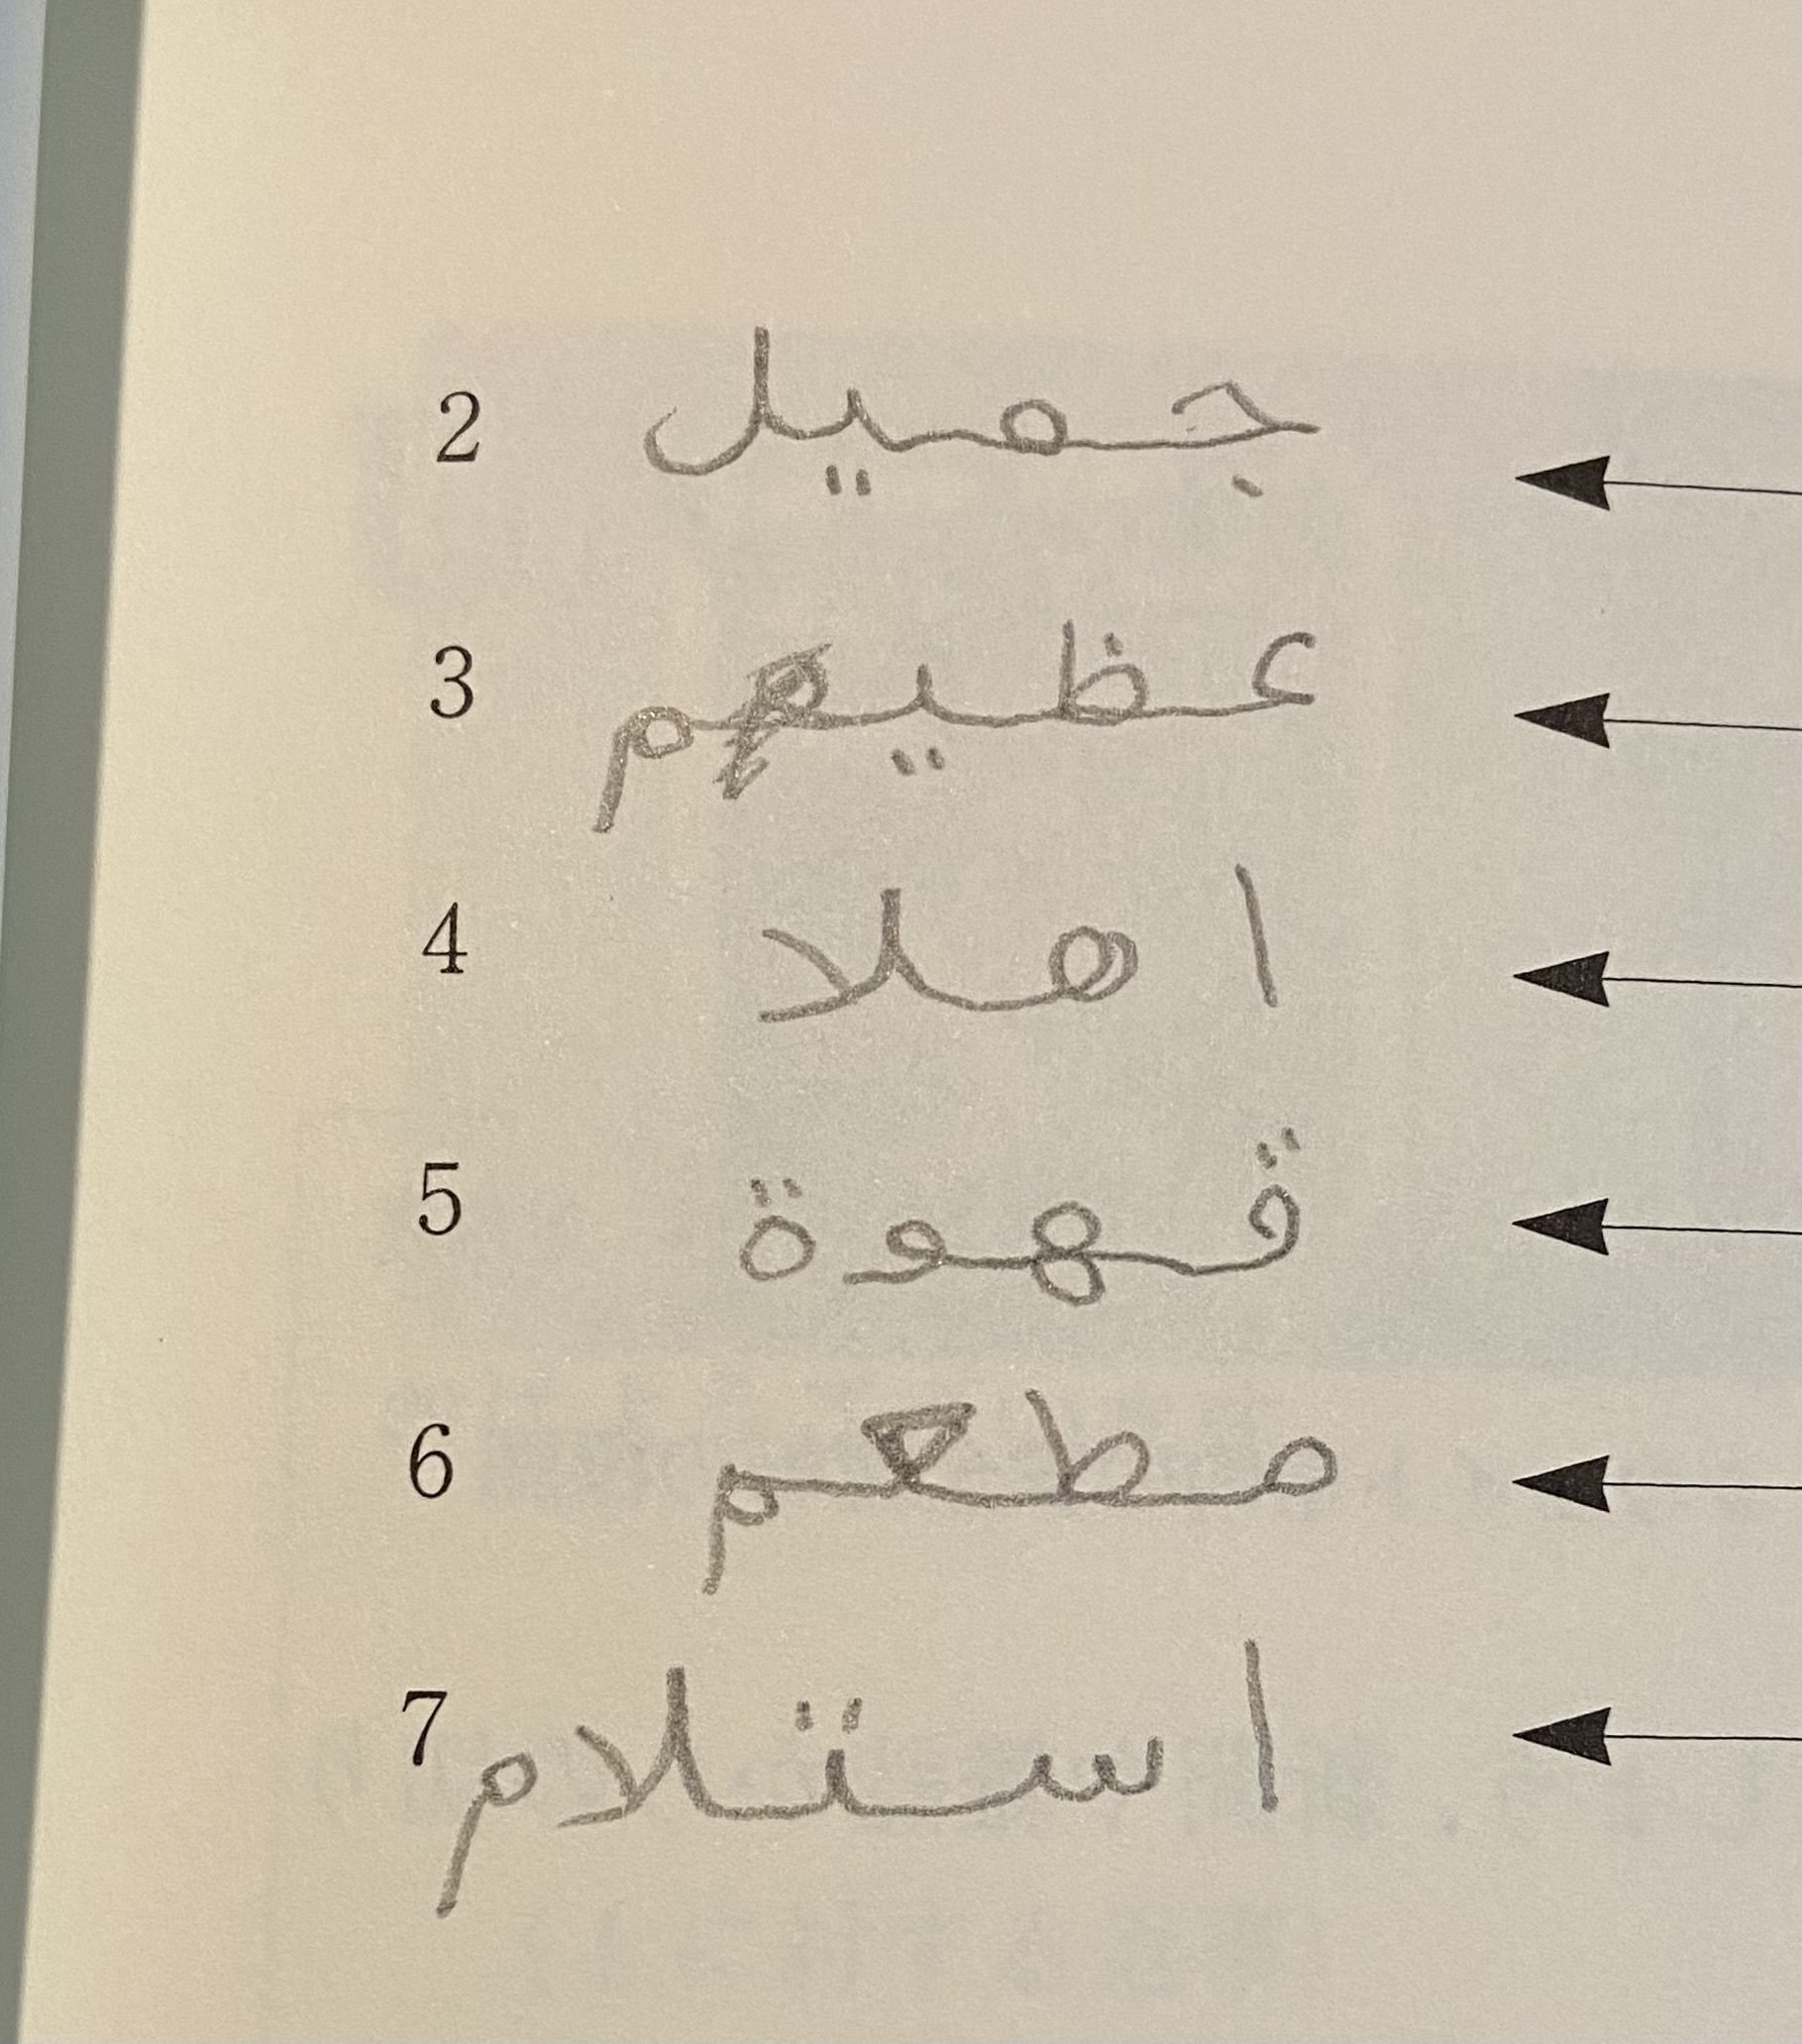 2 جميل
3 عظيم
4 اهلا
5 قهوة
6 مطعم
7 استلام